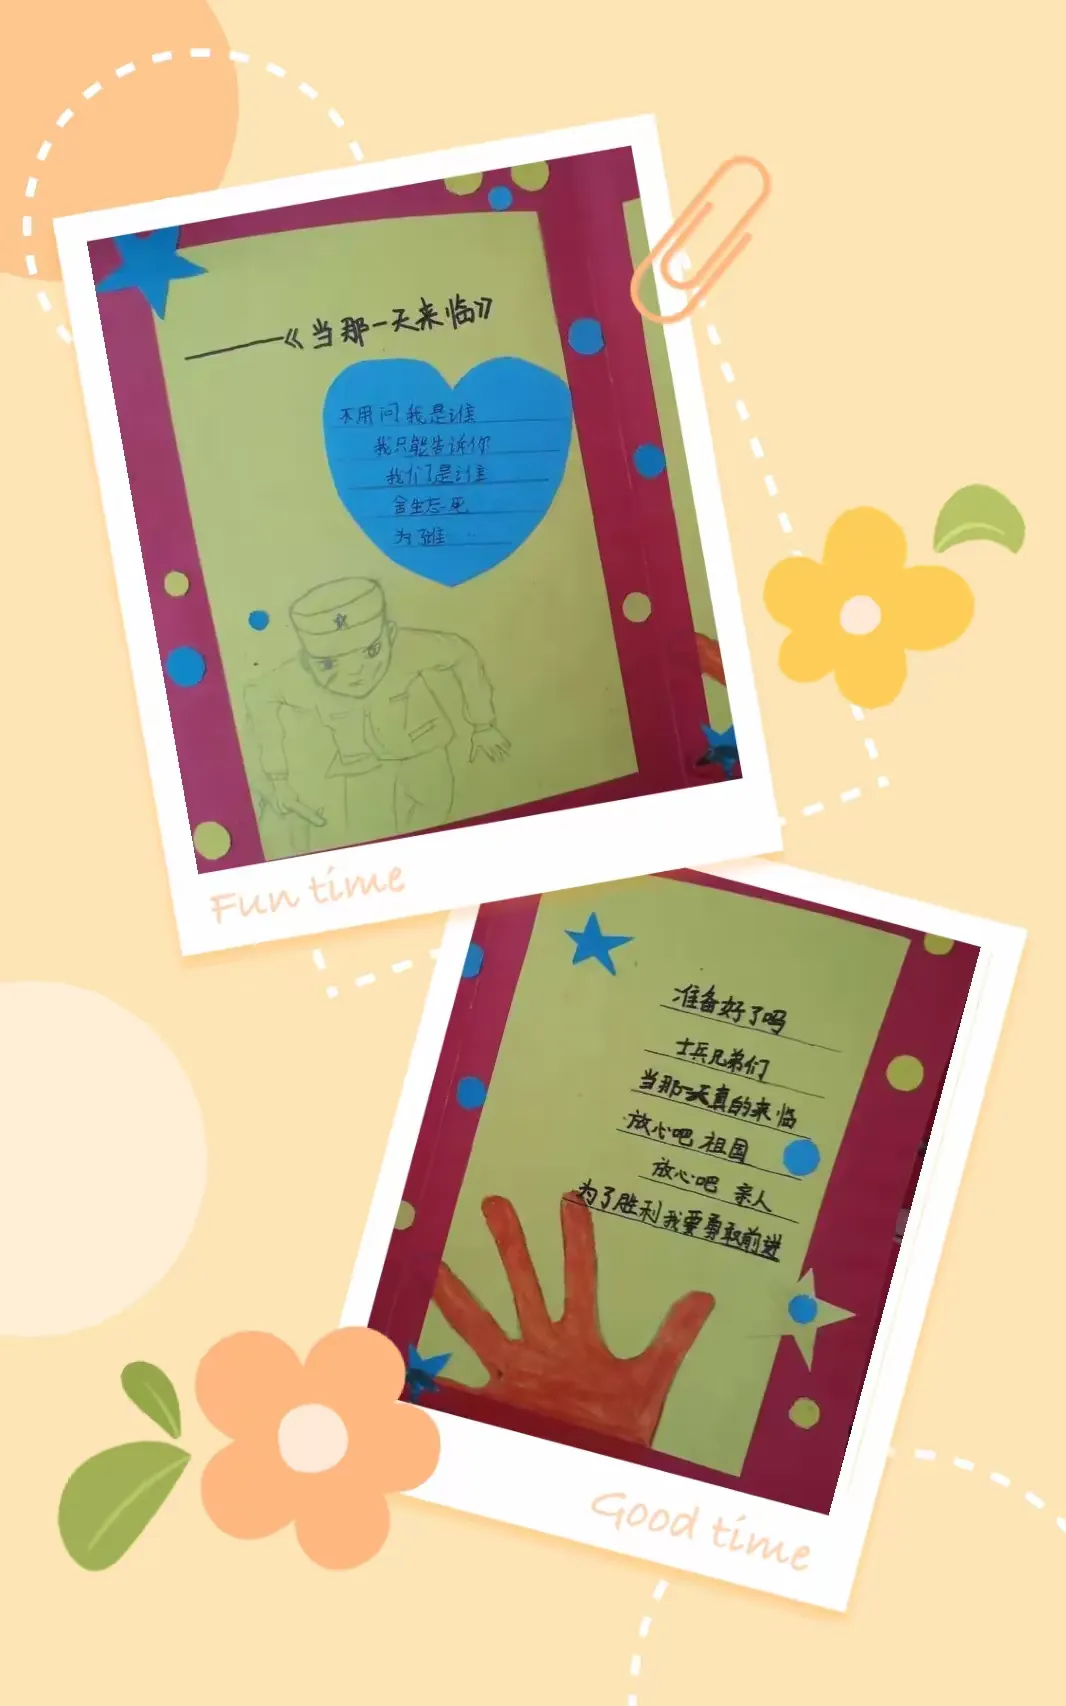 ——《当那一天来临》
不用问我是谁
我只能告诉你
我们是谁
舍生忘死
为了谁……
Fun time
准备好了吗
士兵兄弟们
当那一天真的来临
放心吧 祖国
放心吧 亲人
为了胜利我要勇敢前进
Good time